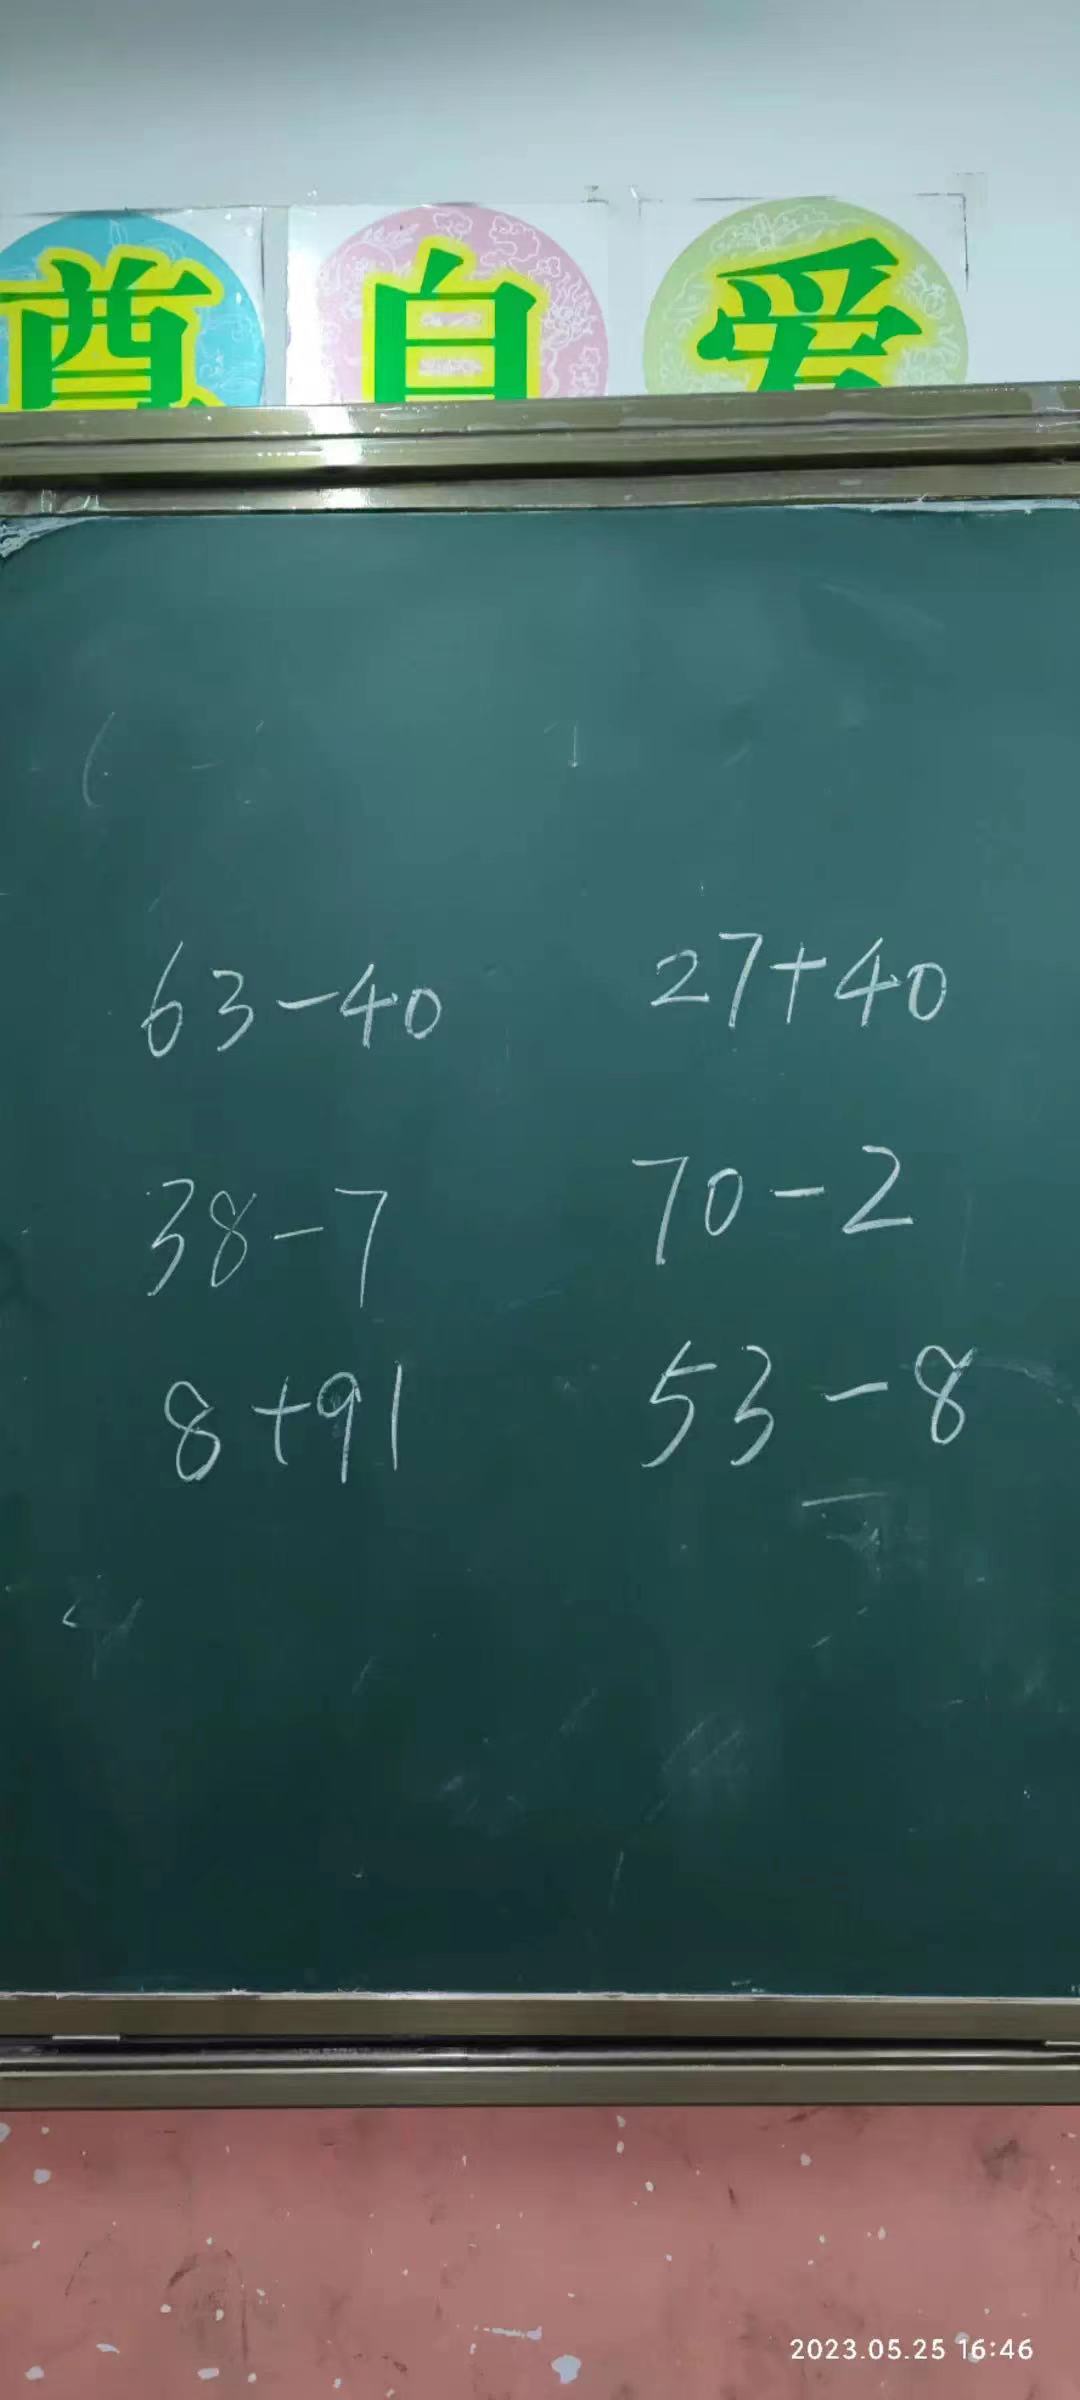 尊 自 爱
63-40 27+40
38-7 70-2
8+91 53-8
2023.05.25 16:46